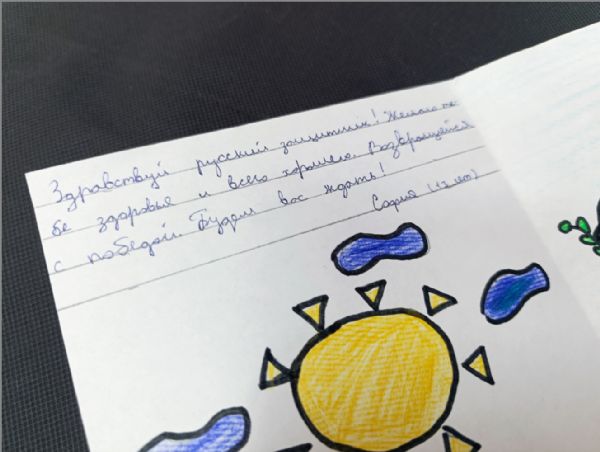 Здравствуй русский защитник! Желаю те-
бе здоровья и всего хорошего. Возвращайся
с победой. Будем вас ждать!
София (12 лет)